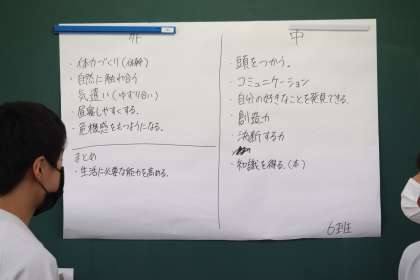 外
・体力づくり(体幹)
・自然に触れ合う
・気遣い(ゆずり合い)
・昼寝しやすくする。
・危機感をもつようになる。
まとめ
・生活に必要な能力を高める。
中
・頭をつかう。
・コミュニケーション
・自分の好きなことを発見できる。
・創造力
・決断する力
・知識を得る。(本)
6班